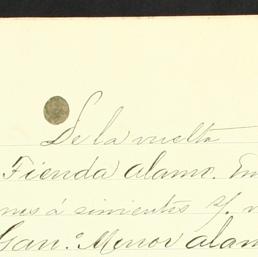 De la vuelta
Fienda alamo. Em
nes á simientes s/. v
Gan.º Menor alam